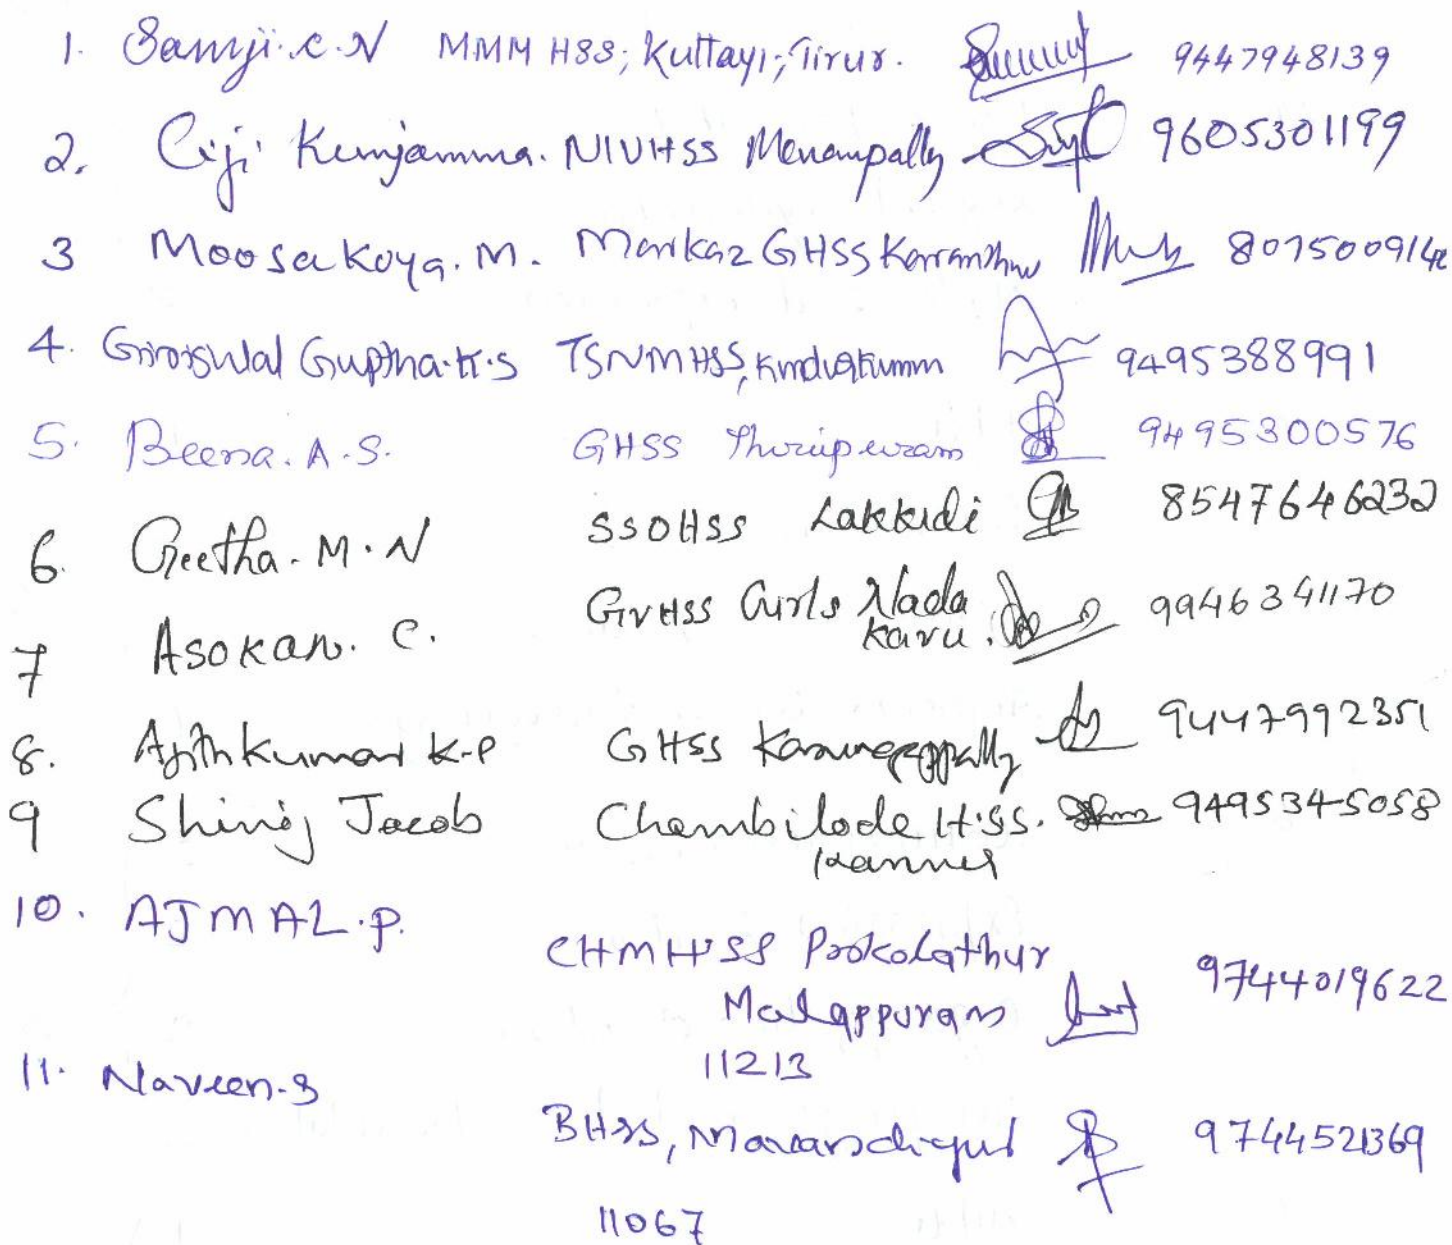 1. Samji.C.N MMM HSS; Kuttayi; Tirur. 9447948139
2. Ciji Kunjamma. NIVHSS Menampally 9605301199
3 Moosakoya. M. Markaz GHSS Karanthur
4. Guptha.K.S TSNMHSS, 9495388991
5. Beena. A.S. GHSS Thirupuram 9495300576
6. Geetha. M.N SSOHSS Lakkidi 8547646232
7 Asokan. C. GVHSS Girls Nada
kavu. 9946341170
8. Ajithkumar K.P GHSS Karunagappally 9447992351
9 Shinoj Jacob Chembilode H.SS. 9495345058
Kannur
10. AJMAL.P. CHMHSS Pookolathur
Malappuram 9744019622
11213
11. Naveen.S
BHSS, 9744521369
11067